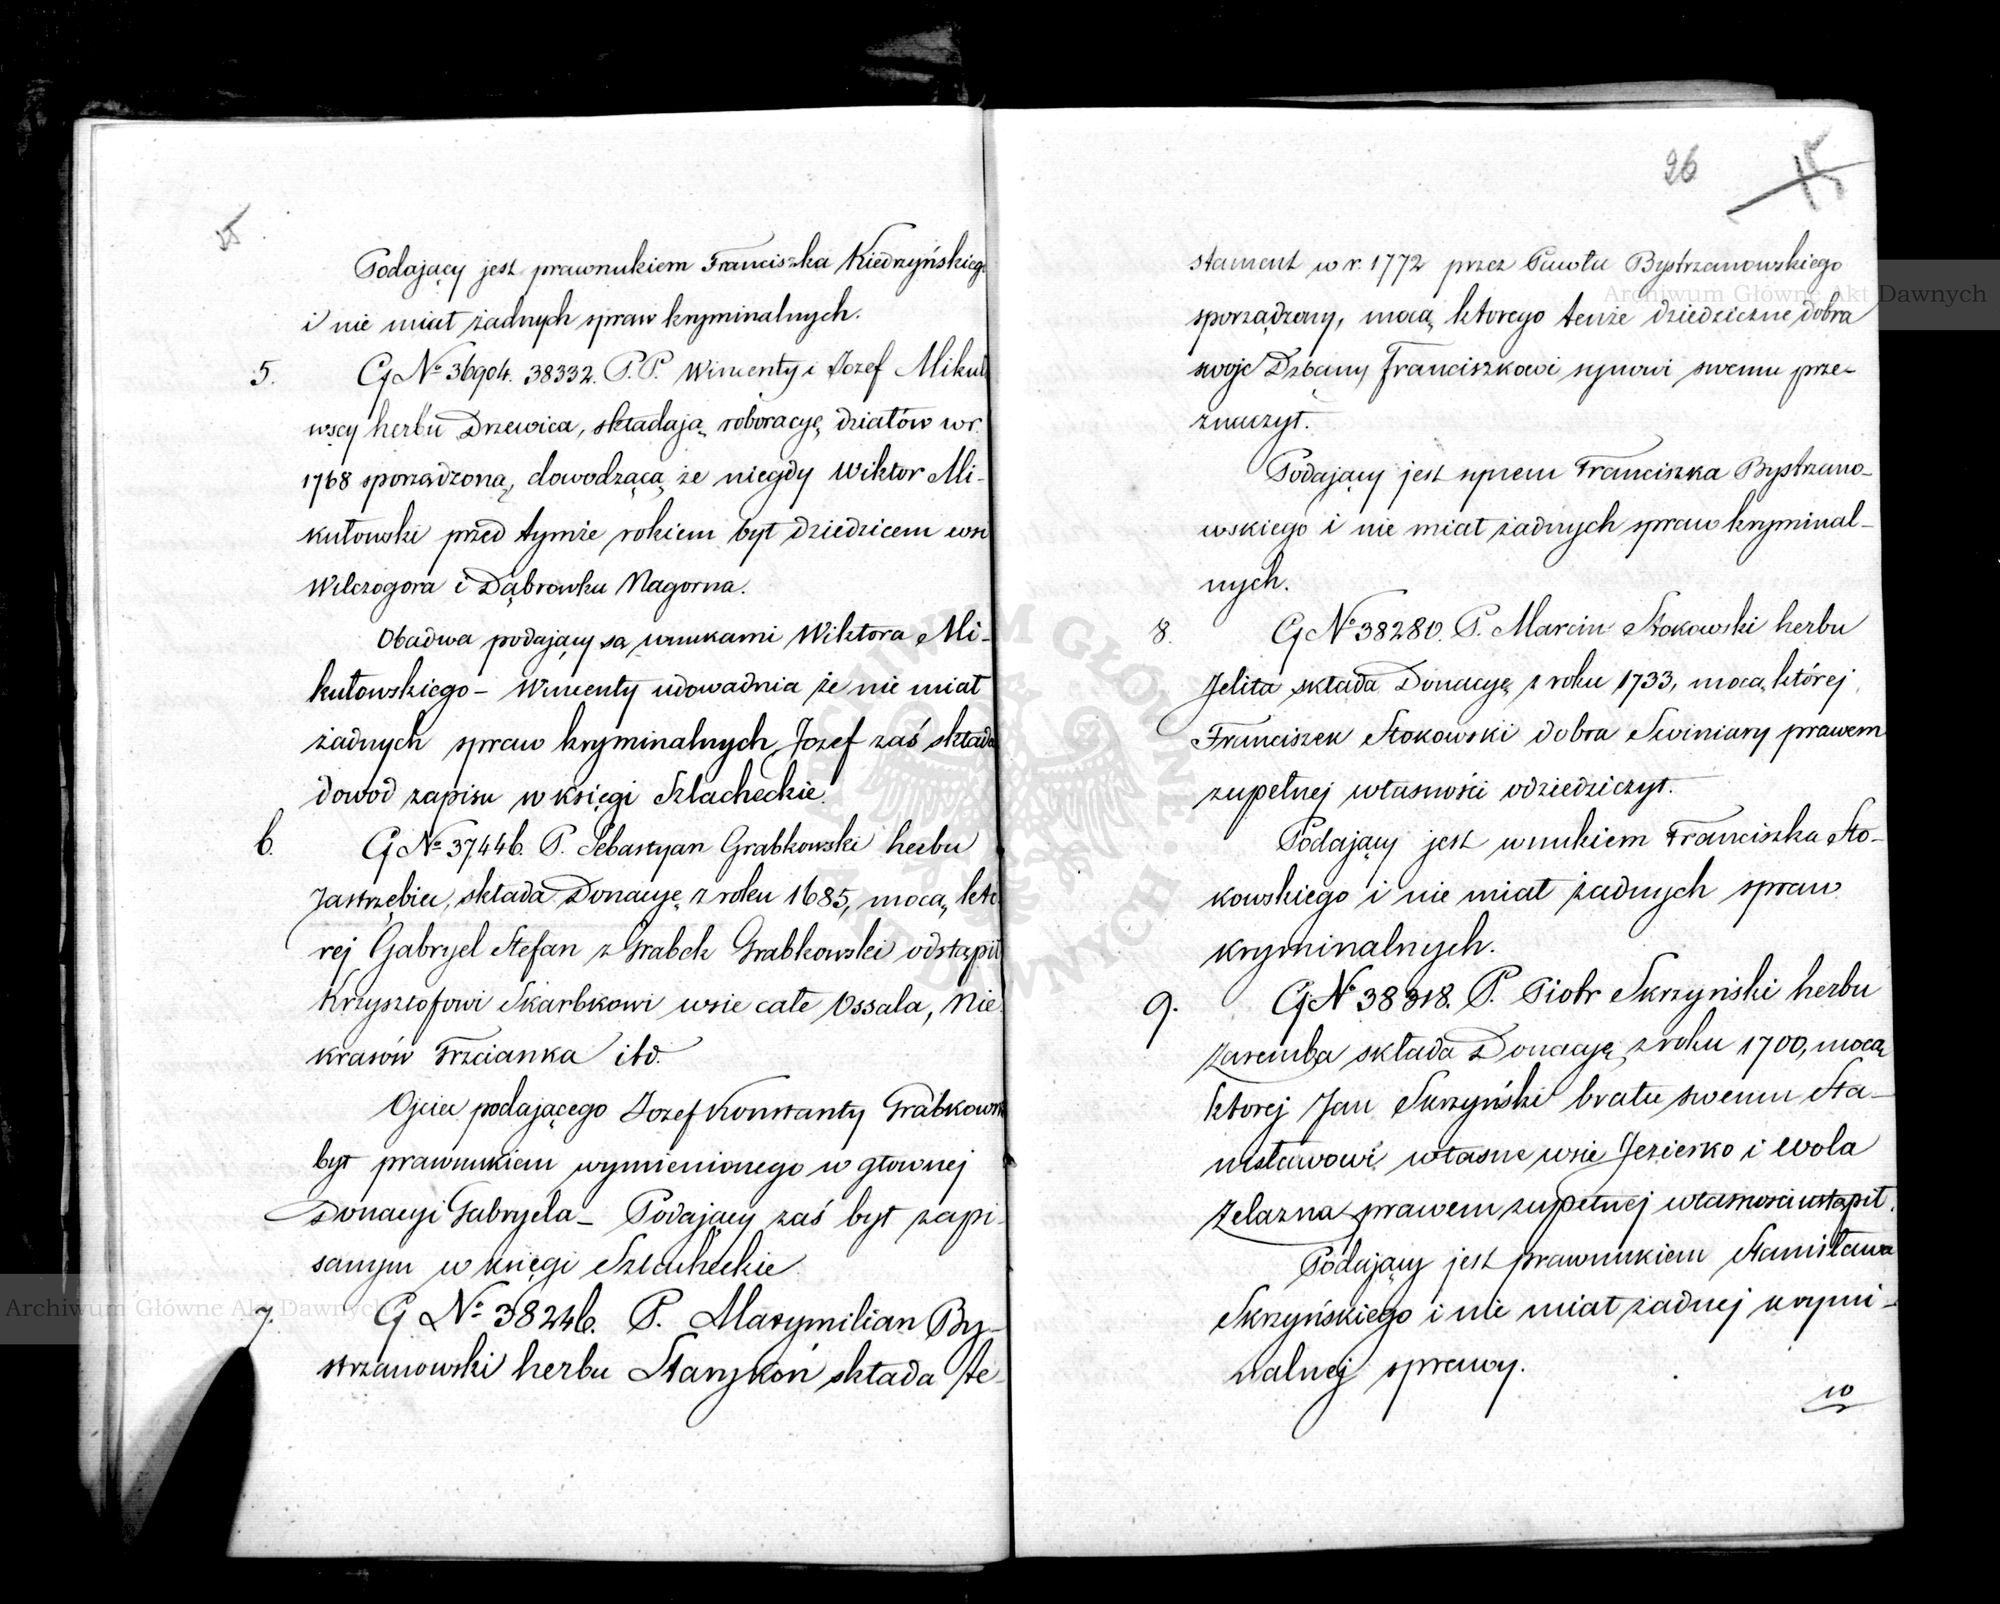 Podający jest prawnukiem Franciszka Kiedrzyńskiego
i nie miał żadnych spraw kryminalnych.
5. G № 36904. 38332. P.P. Wincenty i Jozef Mikuło
wscy herbu Drzewica, składają roboracyę działów w r.
1768 sporządzoną, dowodzącą że niegdy Wiktor Mi-
kułowski przed tymże rokiem był dziedzicem wsi
Wilczogora i Dąbrowka Nagorna.
Obadwa podający są wnukami Wiktora Mi-
kułowskiego – Wincenty udowadnia że nie miał
żadnych spraw kryminalnych, Jozef zaś składa
dowod zapisu w księgi Szlacheckie.
6. G № 37446. P. Sebastyan Grabkowski herbu
Jastrzębiec, składa Donacyę z roku 1685, mocą kto
rej Gabryel Stefan z Grabek Grabkowski odstąpił
Krzysztofowi Skarbkowi wsie całe Ossala, Nie
krasów Trzcianka itd.
Ojciec podającego Jozef Konstanty Grabkowski
był prawnukiem wymienionego w głownej
Donacyi Gabryela – Podający zaś był zapi
sanym w księgi Szlacheckie.
7. G № 38246. P. Maxymilian By-
strzanowski herbu Starykoń składa te-
26 15
stament w r. 1772 przez Pawła Bystrzanowskiego
sporządzony, mocą ktorego tenże dziedziczne dobra
swoje Dzbany Franciszkowi synowi swemu prze-
znaczył.
Podający jest synem Franciszka Bystrzano-
wskiego i nie miał żadnych spraw kryminal-
nych.
8. G № 38280. P. Marcin Stokowski herbu
Jelita składa Donacyę z roku 1733, mocą której
Franciszek Stokowski dobra Swiniary prawem
zupełnej własności odziedziczył.
Podający jest wnukiem Franciszka Sto-
kowskiego i nie miał żadnych spraw
kryminalnych.
9. G № 38318. P. Piotr Skrzyński herbu
Zaremba składa Donacyę z roku 1700, mocą
ktorej Jan Skrzyński bratu swemu Sta-
nisławowi własne wsie Jeziorko i Wola
Żelazna prawem zupełnej własności ustąpił.
Podający jest prawnukiem Stanisława
Skrzyńskiego i nie miał żadnej krymi-
nalnej sprawy.
10
Archiwum Główne Akt Dawnych
Archiwum Główne Akt Dawnych
ARCHIWUM GŁÓWNE AKT DAWNYCH